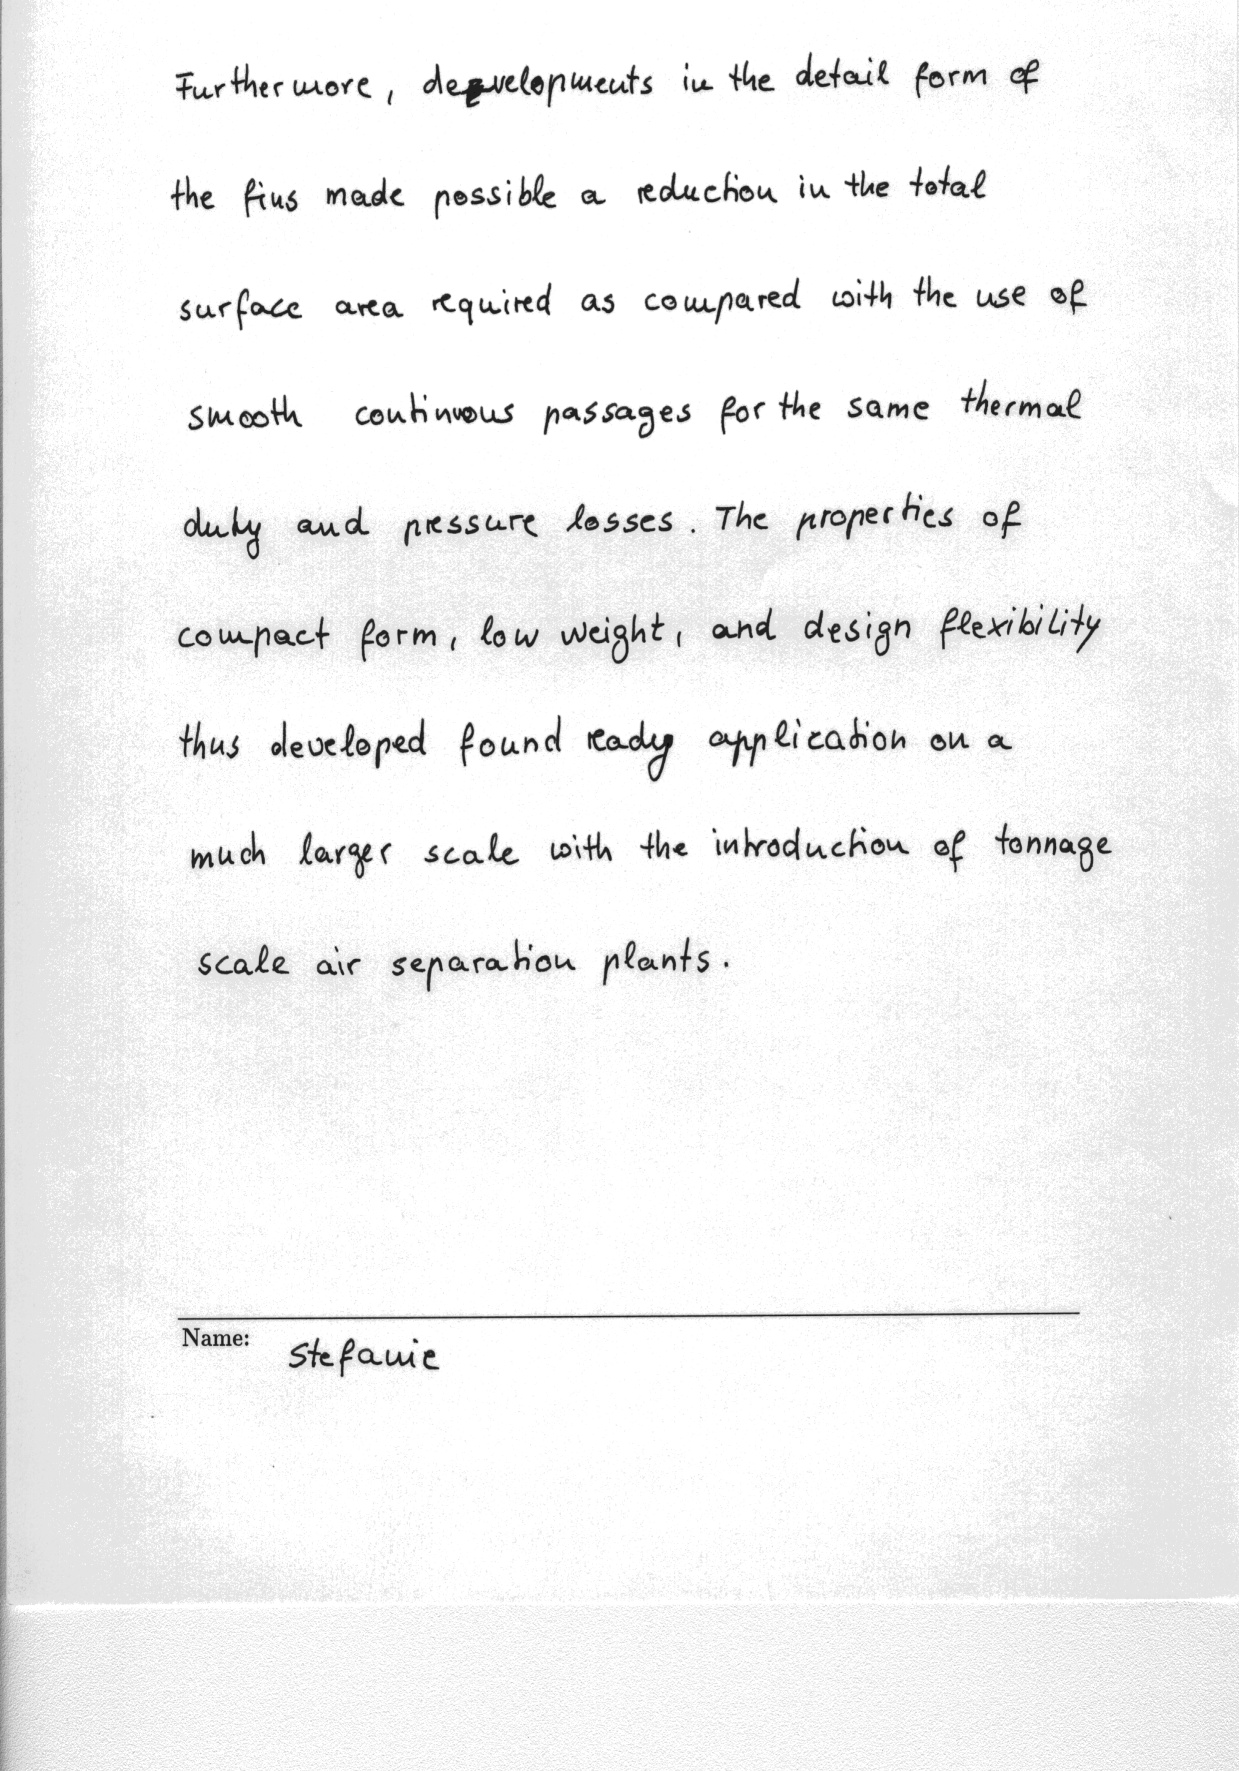 Furthermore, developments in the detail form of
the fins made possible a reduction in the total
surface area required as compared with the use of
smooth continuous passages for the same thermal
duty and pressure losses. The properties of
compact form, low weight, and design flexibility
thus developed found ready application on a
much larger scale with the introduction of tonnage
scale air separation plants.
Name:
Stefanie